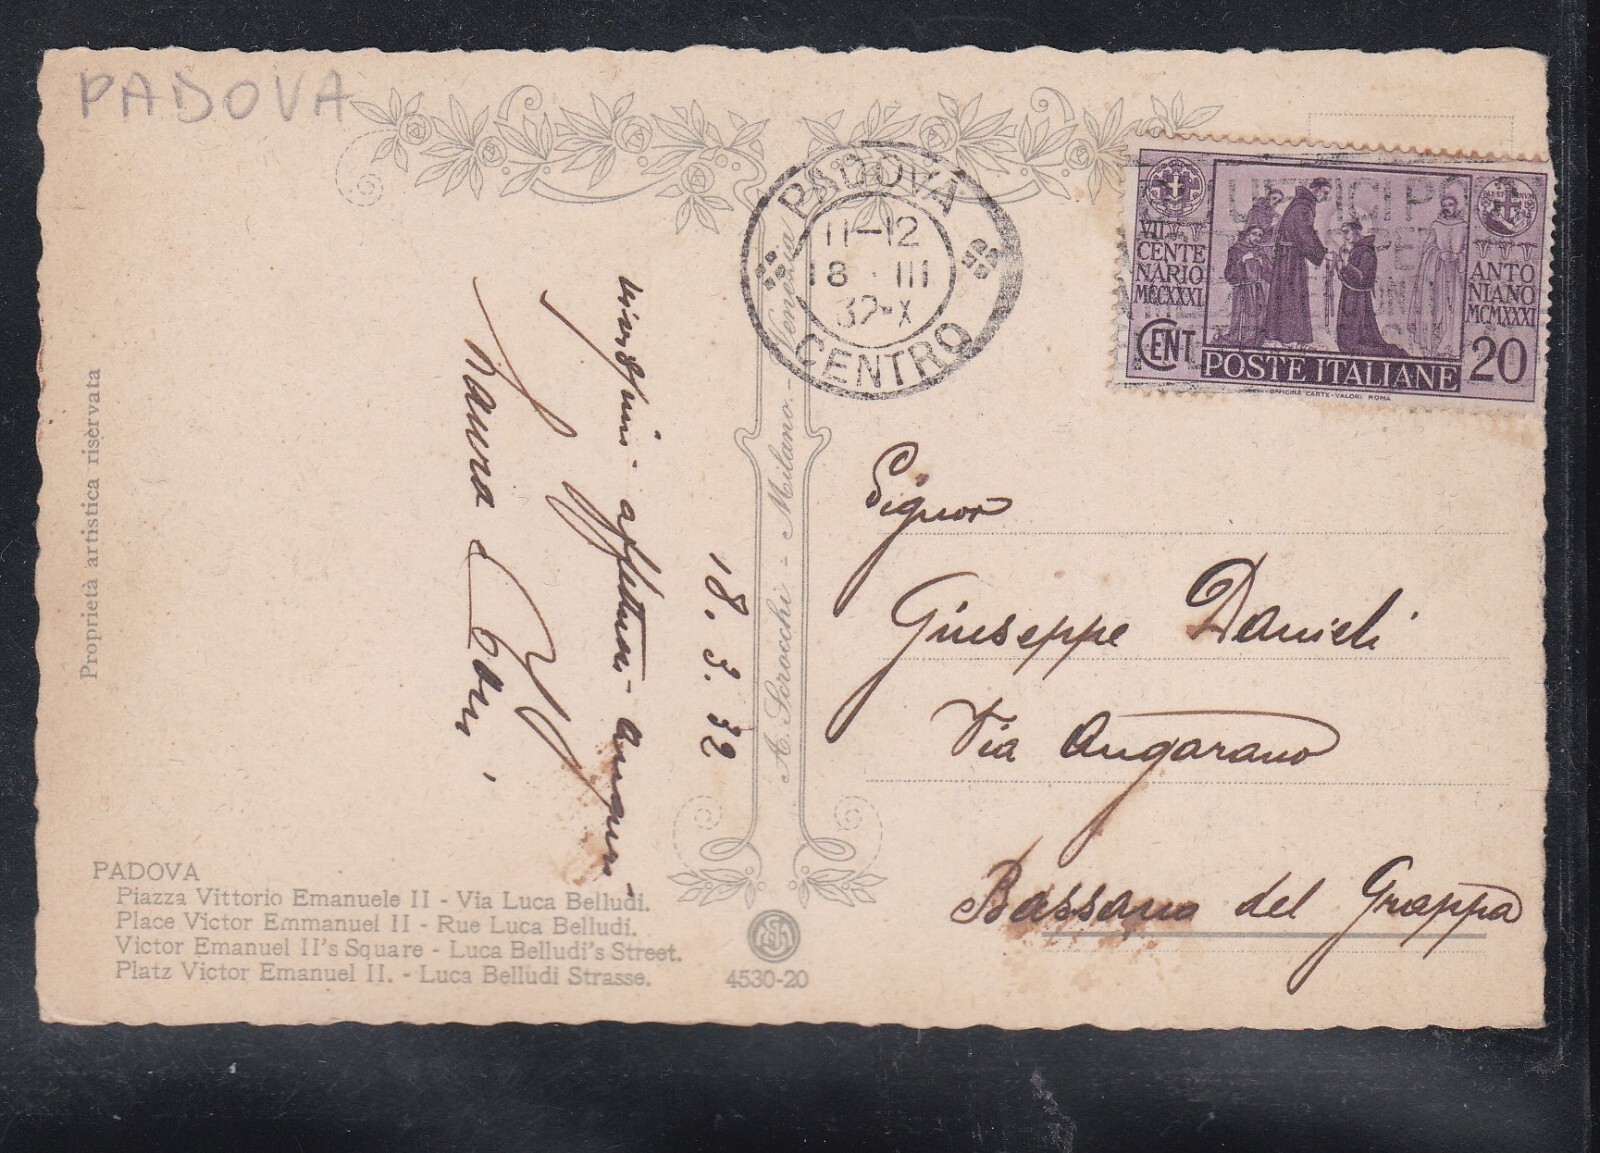 PADOVA
PADOVA
11-12
18 . III
32-X
CENTRO
UFFICI PO
VII
CENTE
NARIO
MCCXXXI
ANTO
NIANO
MCMXXXI
CENT
POSTE ITALIANE
20
OFFICINA CARTE-VALORI ROMA
Proprietà artistica riservata
A. Scrocchi - Milano - Venezia
18. 3. 32
affettuosi
Signor
Giuseppe Danieli
Via Angarano
Bassano del Grappa
PADOVA
Piazza Vittorio Emanuele II - Via Luca Belludi.
Place Victor Emmanuel II - Rue Luca Belludi.
Victor Emanuel II's Square - Luca Belludi's Street.
Platz Victor Emanuel II. - Luca Belludi Strasse.
4530-20